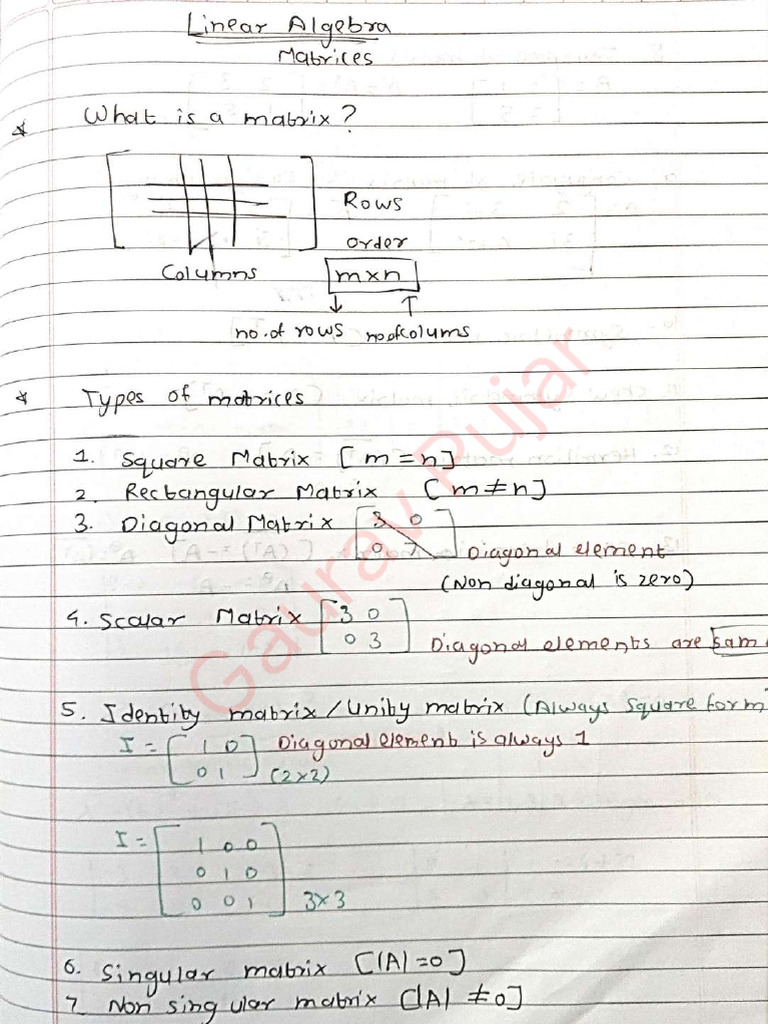 Linear Algebra
Matrices
* What is a matrix?
Rows
order
Columns
m×n
no. of rows no of colums
* Types of matrices
1. Square Matrix [m = n]
2. Rectangular Matrix [m ≠ n]
3. Diagonal Matrix [3 0
0 7] Diagonal element
(Non diagonal is zero)
4. Scalar Matrix [3 0
0 3] Diagonal elements are sam
5. Identity matrix / Unity matrix (Always Square form
I = [1 0 Diagonal element is always 1
0 1] (2×2)
I = [1 0 0
0 1 0
0 0 1] 3×3
6. Singular matrix [|A| = 0]
7 Non singular matrix [|A| ≠ 0]
Gaurav Pujar